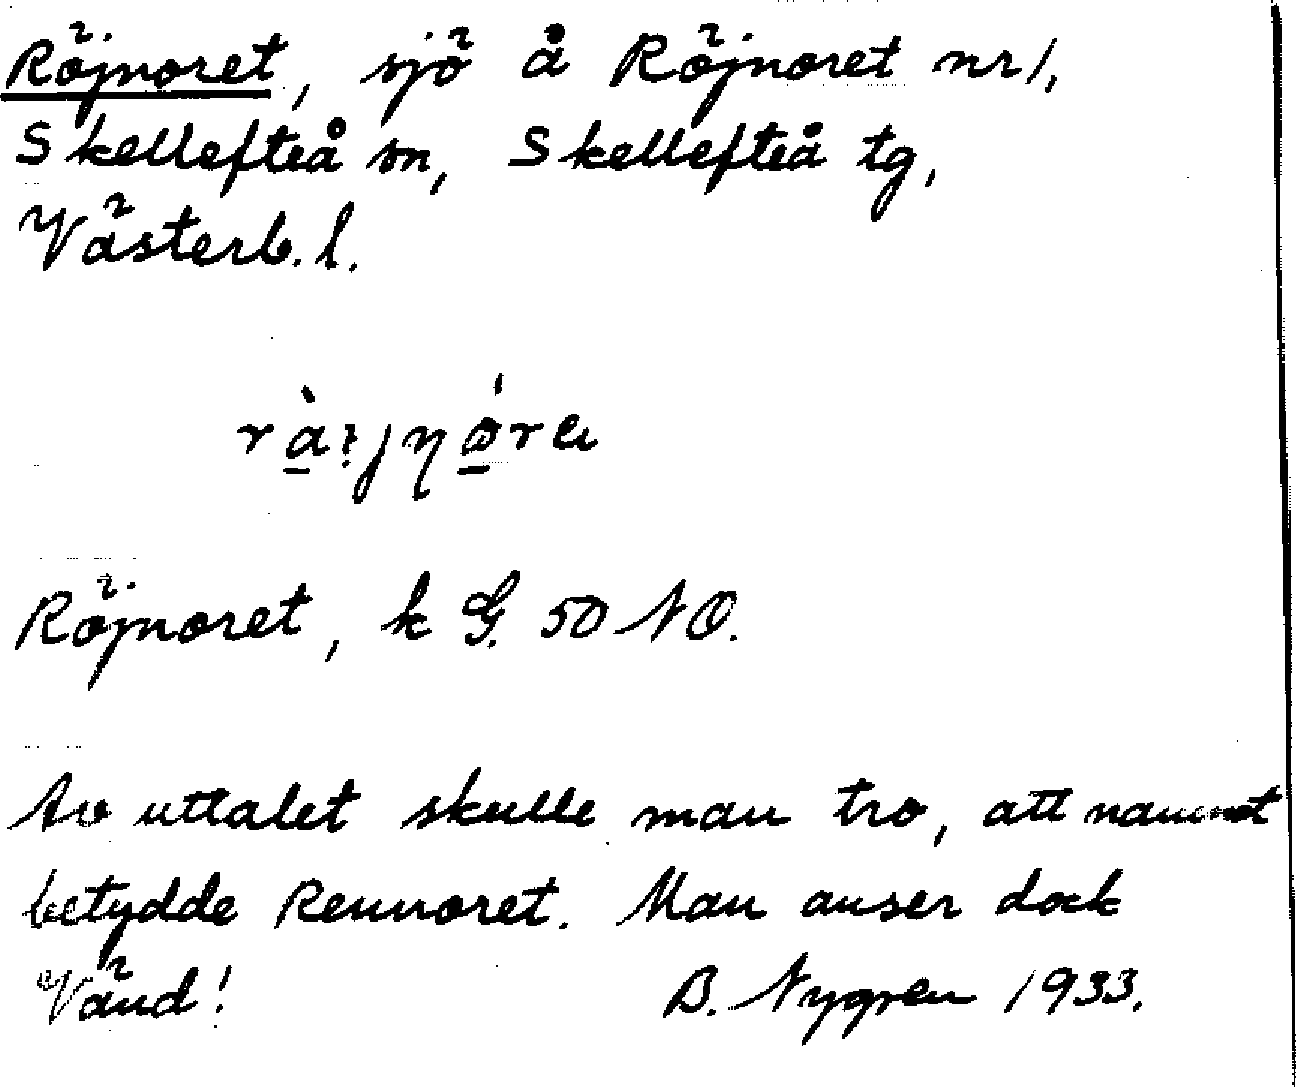 Röjnoret, sjö å Röjnoret nr 1,
Skellefteå sn, Skellefteå tg,
Västerb. l.
Röjnoret, k G. 50 NO.
Av uttalet skulle man tro, att namnet
betydde Rennoret. Man anser dock
Vänd! B. Nygren 1933.